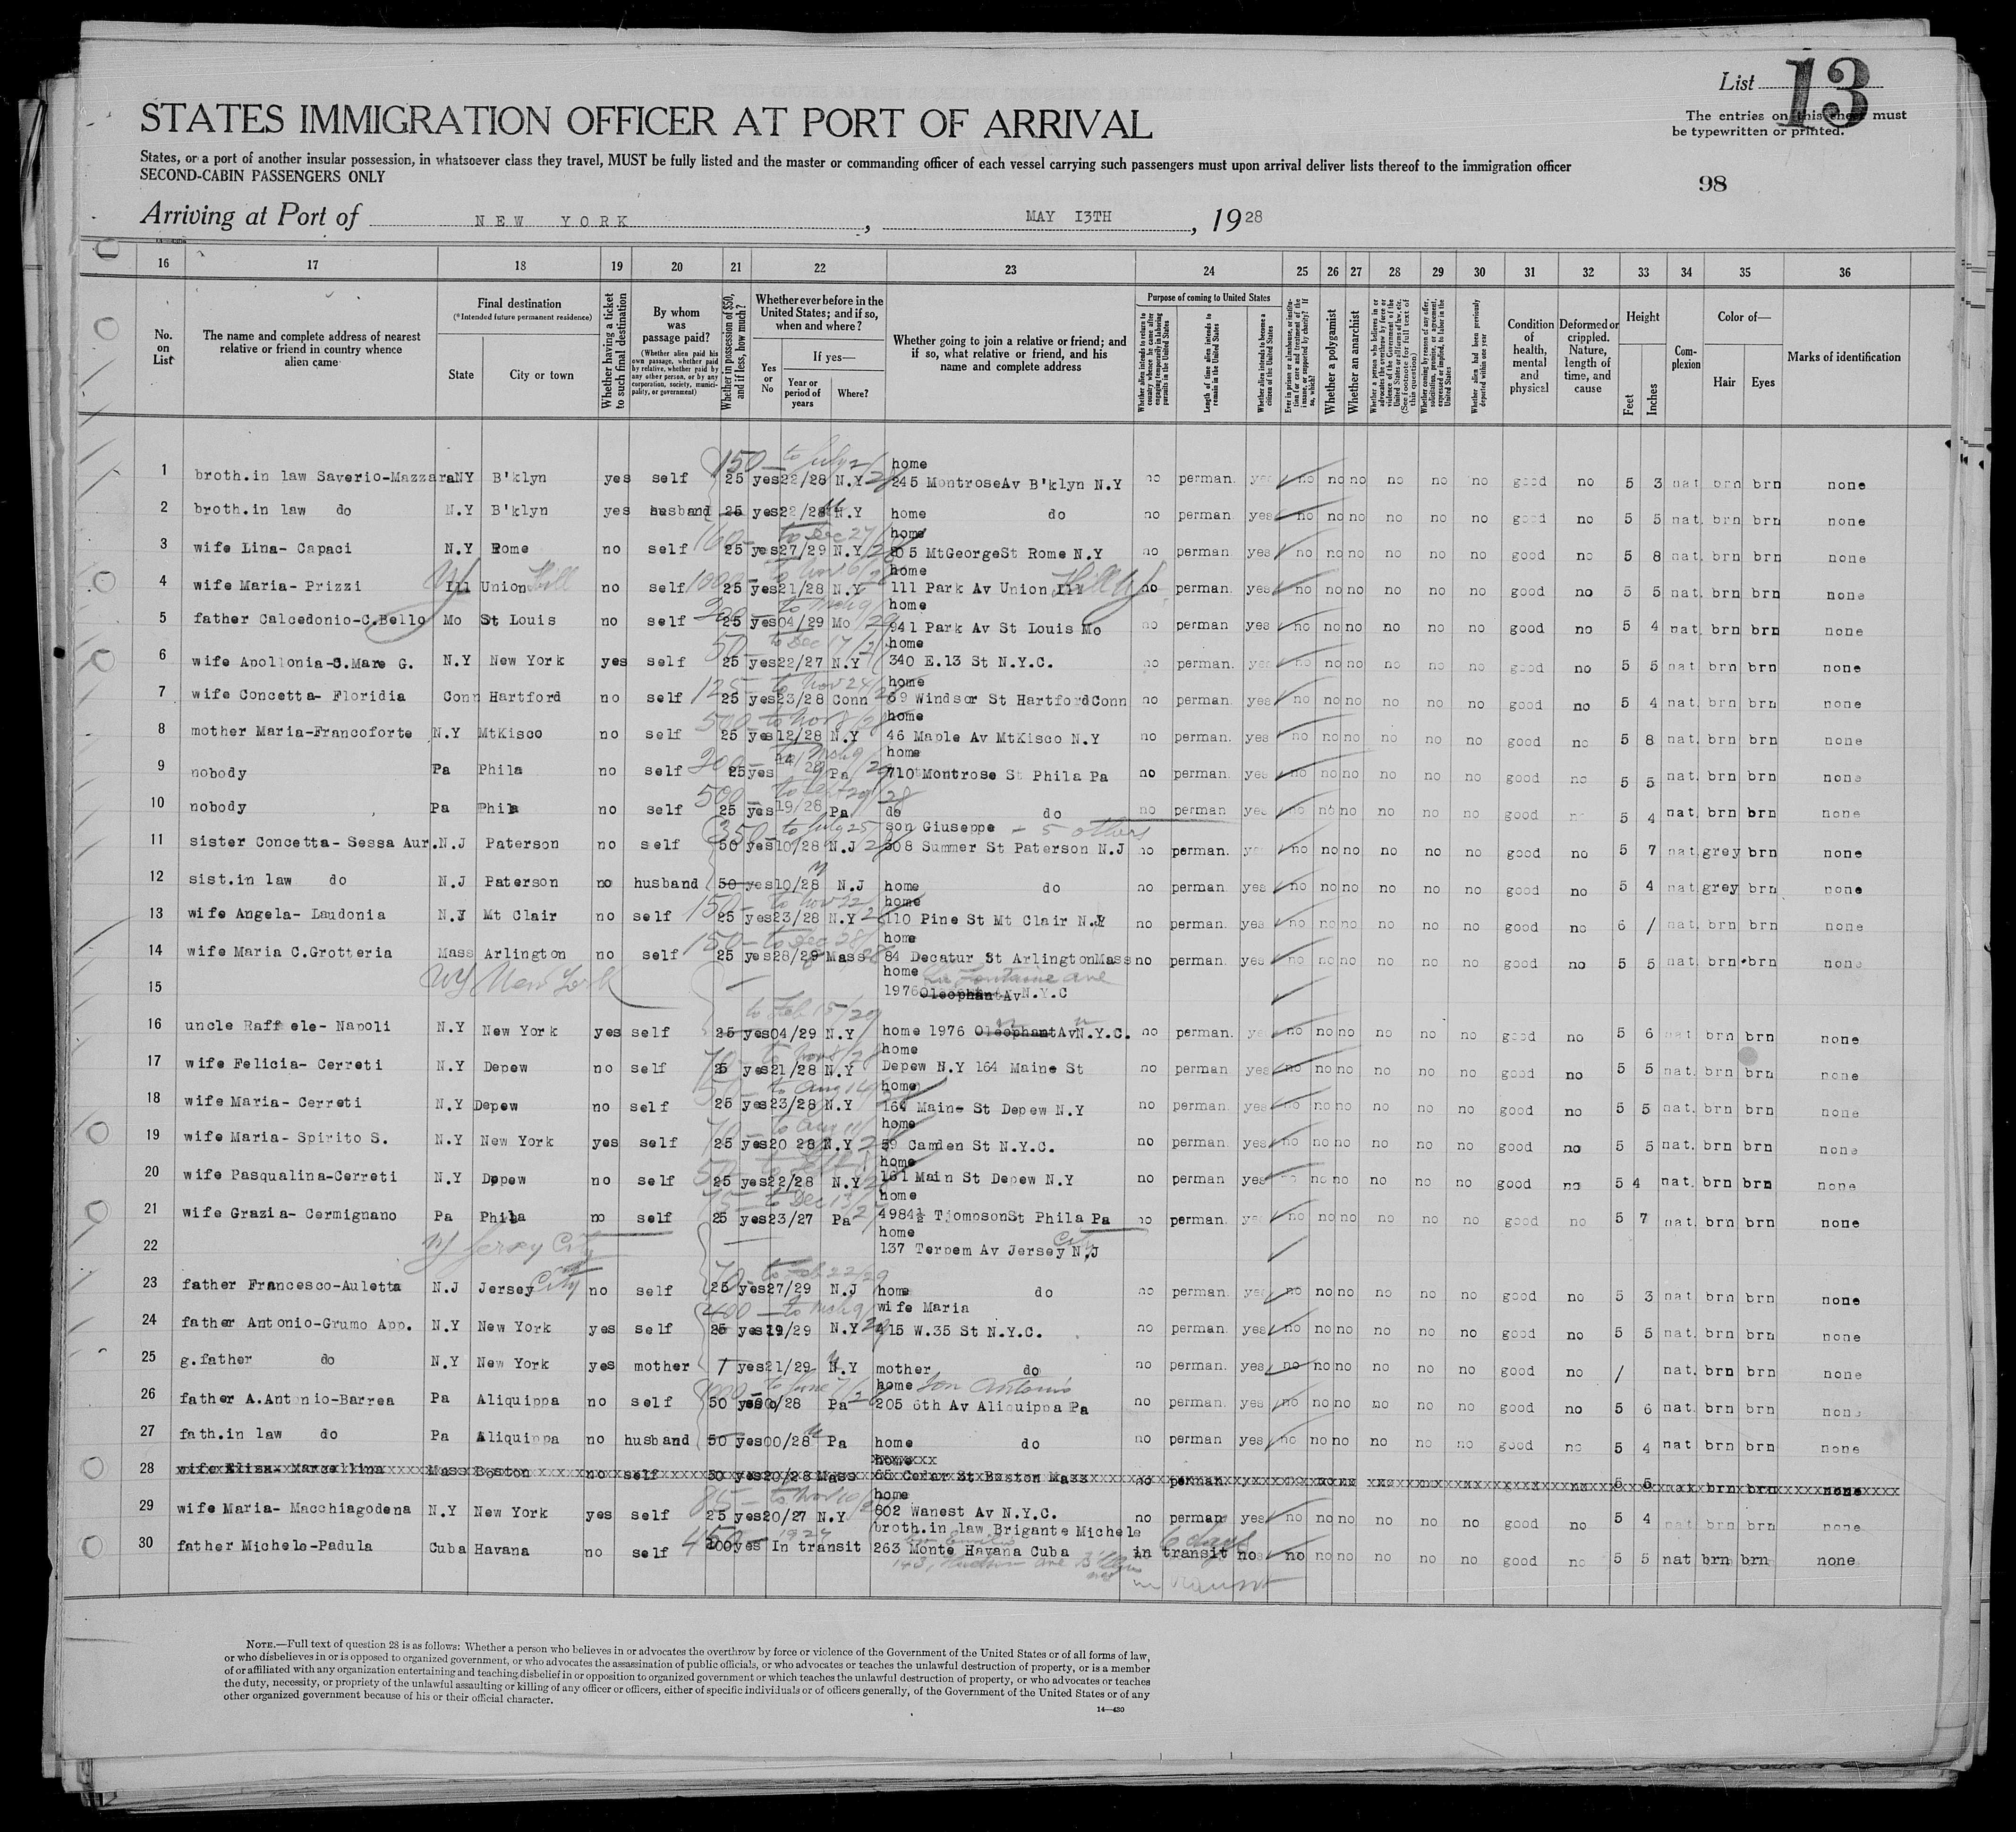 List 13
The entries on this sheet must
be typewritten or printed.
STATES IMMIGRATION OFFICER AT PORT OF ARRIVAL
States, or a port of another insular possession, in whatsoever class they travel, MUST be fully listed and the master or commanding officer of each vessel carrying such passengers must upon arrival deliver lists thereof to the immigration officer
SECOND-CABIN PASSENGERS ONLY
98
Arriving at Port of NEW YORK, MAY 13TH, 1928
16 17 18 19 20 21 22 23 24 25 26 27 28 29 30 31 32 33 34 35 36
No. on List
The name and complete address of nearest relative or friend in country whence alien came
Final destination
(*Intended future permanent residence)
State
City or town
Whether having a ticket to such final destination
By whom was passage paid?
(Whether alien paid his own passage, whether paid by relative, whether paid by any other person, or by any corporation, society, municipality, or government)
Whether in possession of $50, and if less, how much?
Whether ever before in the United States; and if so, when and where?
Yes or No
If yes—
Year or period of years
Where?
Whether going to join a relative or friend; and if so, what relative or friend, and his name and complete address
Purpose of coming to United States
Whether alien intends to return to country whence he came after engaging temporarily in laboring pursuits in the United States
Length of time alien intends to remain in the United States
Whether alien intends to become a citizen of the United States
Ever in prison or almshouse, or institution for care and treatment of the insane, or supported by charity? If so, which?
Whether a polygamist
Whether an anarchist
Whether a person who believes in or advocates the overthrow by force or violence of the Government of the United States or all forms of law, etc. (See footnote for full text of this question)
Whether coming by reason of any offer, solicitation, promise, or agreement, expressed or implied, to labor in the United States
Whether alien had been previously deported within one year
Condition of health, mental and physical
Deformed or crippled. Nature, length of time, and cause
Height
Feet
Inches
Complexion
Color of—
Hair
Eyes
Marks of identification
150 — to July 2/28
home
1 broth.in law Saverio-Mazzara NY B'klyn yes self 25 yes 22/28 N.Y 245 MontroseAv B'klyn N.Y no perman. yes no no no no no no good no 5 3 nat brn brn none
2 broth.in law do N.Y B'klyn yes husband 25 yes 22/28 N.Y home do no perman. yes no no no no no no good no 5 5 nat. brn brn none
to Dec 27/28
home
3 wife Lina- Capaci N.Y Rome no self 25 yes 27/29 N.Y 205 MtGeorgeSt Rome N.Y no perman yes no no no no no no good no 5 8 nat. brn brn none
1000 — to Nov 6/28
home
4 wife Maria- Prizzi Ill Union Hill no self 25 yes 21/28 N.Y 111 Park Av Union Ill Hill NJ no perman. yes no no no no no no good no 5 5 nat. brn brn none
200 — to Mch 9/29
home
5 father Calcedonio-C.Bello Mo St Louis no self 25 yes 04/29 Mo 941 Park Av St Louis Mo no perman yes no no no no no no good no 5 4 nat. brn brn none
50 — to Dec 17/27
home
6 wife Apollonia-C.Mare G. N.Y New York yes self 25 yes 22/27 N.Y 340 E.13 St N.Y.C. no perman. yes no no no no no no good no 5 5 nat brn brn none
125 — to Nov 24/28
home
7 wife Concetta- Floridia Conn Hartford no self 25 yes 23/28 Conn 69 Windsor St HartfordConn no perman. yes no no no no no no good no 5 4 nat. brn brn none
500 — to Nov 8/28
home
8 mother Maria-Francoforte N.Y MtKisco no self 25 yes 12/28 N.Y 46 Maple Av MtKisco N.Y no perman. yes no no no no no no good no 5 8 nat. brn brn none
200 — Mch 9/29
home
9 nobody Pa Phila no self 25 yes 28 Pa 710 Montrose St Phila Pa no perman yes no no no no no no good no 5 5 nat. brn brn none
500 — 28
10 nobody Pa Phila no self 25 yes 19/28 Pa do do no perman yes no no no no no no good no 5 4 nat. brn brn none
350 — to July 25/28
son Giuseppe - 5 others
11 sister Concetta- Sessa Aur. N.J Paterson no self 50 yes 10/28 N.J 308 Summer St Paterson N.J no perman. yes no no no no no no good no 5 7 nat. grey brn none
12 sist.in law do N.J Paterson no husband 50 yes 10/28 N.J home do no perman. yes no no no no no no good no 5 4 nat. grey brn none
150 — to Nov 22/28
home
13 wife Angela- Laudonia N.J Mt Clair no self 25 yes 23/28 N.Y 110 Pine St Mt Clair N.J no perman. yes no no no no no no good no 6 / nat. brn brn none
150 — to Dec 28/28
home
14 wife Maria C.Grotteria Mass Arlington no self 25 yes 28/29 Mass 84 Decatur St ArlingtonMass no perman. yes no no no no no no good no 5 5 nat. brn brn none
NY New York
home La Fontaine Ave
15 1976 Oleophant Av N.Y.C
to Feb 15/29
16 uncle Raffaele- Napoli N.Y New York yes self 25 yes 04/29 N.Y home 1976 Oleophant Av N.Y.C. no perman. yes no no no no no no good no 5 6 nat brn brn none
70 — to Nov 8/28
home
17 wife Felicia- Cerreti N.Y Depew no self 25 yes 21/28 N.Y Depew N.Y 164 Maine St no perman yes no no no no no no good no 5 5 nat. brn brn none
50 — to Aug 14
home
18 wife Maria- Cerreti N.Y Depew no self 25 yes 23/28 N.Y 164 Maine St Depew N.Y no perman. yes no no no no no no good no 5 5 nat. brn brn none
70 — to Aug 11/28
home
19 wife Maria- Spirito S. N.Y New York yes self 25 yes 20 28 N.Y 59 Camden St N.Y.C. no perman. yes no no no no no no good no 5 5 nat. brn brn none
50 —
home
20 wife Pasqualina-Cerreti N.Y Depew no self 25 yes 22/28 N.Y 161 Main St Depew N.Y no perman. yes no no no no no no good no 5 4 nat. brn brn none
75 — to Dec 13/27
home
21 wife Grazia- Cermignano Pa Phila no self 25 yes 23/27 Pa 4984½ TjompsonSt Phila Pa no perman. yes no no no no no no good no 5 7 nat. brn brn none
NJ Jersey City
home
22 137 Terpem Av Jersey City N.J
70 — to Feb 22/29
23 father Francesco-Auletta N.J Jersey City no self 25 yes 27/29 N.J home do no perman. yes no no no no no no good no 5 3 nat brn brn none
400 — to Mch 9/29
wife Maria
24 father Antonio-Grumo App. N.Y New York yes self 25 yes 19/29 N.Y 415 W.35 St N.Y.C. no perman. yes no no no no no no good no 5 5 nat. brn brn none
25 g.father do N.Y New York yes mother / yes 21/29 N.Y mother do no perman. yes no no no no no no good no / nat. brn brn none
1000 — to June 7/28
home son Antonio
26 father A.Antonio-Barrea Pa Aliquippa no self 50 yes 00/28 Pa 205 6th Av Aliquippa Pa no perman. yes no no no no no no good no 5 6 nat. brn brn none
27 fath.in law do Pa Aliquippa no husband 50 yes 00/28 Pa home do no perman yes no no no no no no good no 5 4 nat brn brn none
home
28 wife Elisa- Marcellina Mass Boston no self 50 yes 20/28 Mass 65 Cedar St Boston Mass no perman. yes 5 5 nat brn brn none
85 — to Nov 10/
home
29 wife Maria- Macchiagodena N.Y New York yes self 25 yes 20/27 N.Y 602 Wanest Av N.Y.C. no perman yes no no no no no no good no 5 4 nat brn brn none
450 1927
broth.in law Brigante Michele 6 days
30 father Michele-Padula Cuba Havana no self 100 yes In transit 263 Monte Havana Cuba in transit no no no no no no no good no 5 5 nat brn brn none
143, Hudson Ave B'klyn
in transit
NOTE.—Full text of question 28 is as follows: Whether a person who believes in or advocates the overthrow by force or violence of the Government of the United States or of all forms of law,
or who disbelieves in or is opposed to organized government, or who advocates the assassination of public officials, or who advocates or teaches the unlawful destruction of property, or is a member
of or affiliated with any organization entertaining and teaching disbelief in or opposition to organized government or which teaches the unlawful destruction of property, or who advocates or teaches
the duty, necessity, or propriety of the unlawful assaulting or killing of any officer or officers, either of specific individuals or of officers generally, of the Government of the United States or of any
other organized government because of his or their official character.
14—430